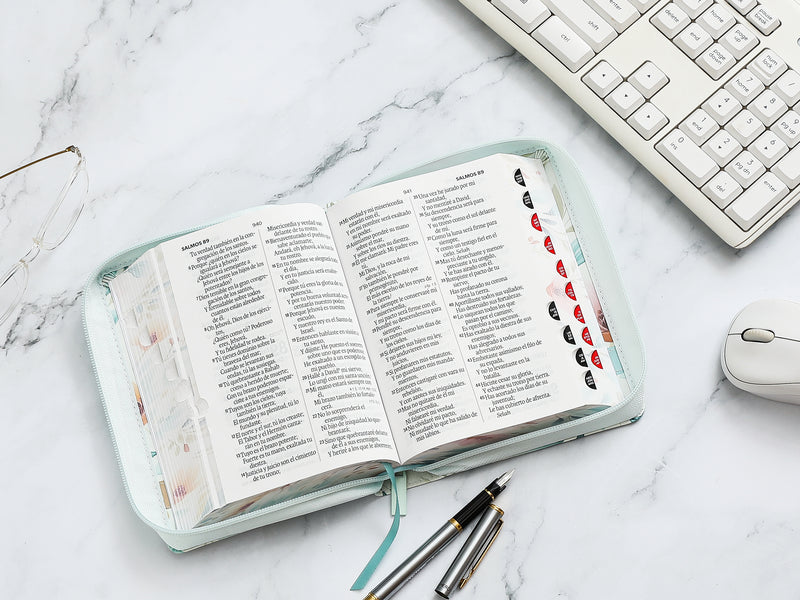 SALMOS 89
940
Tu verdad también en la con-
gregación de los santos.
6 Porque ¿quién en los cielos se
igualará a Jehová?
¿Quién será semejante a
Jehová entre los hijos de los
potentados?
7 Dios temible en la gran congre-
gación de los santos,
Y formidable sobre todos
cuantos están alrededor
de él.
8 Oh Jehová, Dios de los ejérci-
tos,
¿Quién como tú? Poderoso
Y tu fidelidad te rodea.
9 Tú tienes dominio sobre la
braveza del mar;
Cuando se levantan sus
ondas, tú las sosiegas.
10 Tú quebrantaste a Rahab
como a herido de muerte;
Con tu brazo poderoso espar-
ciste a tus enemigos.
11 Tuyos son los cielos, tuya
también la tierra;
El mundo y su plenitud, tú lo
fundaste.
12 El norte y el sur, tú los creaste;
El Tabor y el Hermón canta-
rán en tu nombre.
13 Tuyo es el brazo potente;
Fuerte es tu mano, exaltada tu
diestra.
14 Justicia y juicio son el cimiento
de tu trono;
Misericordia y verdad van
delante de tu rostro.
15 Bienaventurado el pueblo que
sabe aclamarte;
Andará, oh Jehová, a la luz de
tu rostro.
16 En tu nombre se alegrará todo
el día,
Y en tu justicia será enalte-
cido.
17 Porque tú eres la gloria de su
potencia,
Y por tu buena voluntad acre-
centarás nuestro poder.
18 Porque Jehová es nuestro
escudo,
Y nuestro rey es el Santo
19 Entonces hablaste en visión a
tu santo,
Y dijiste: He puesto el socorro
sobre uno que es poderoso;
He exaltado a un escogido de
mi pueblo.
20 Hallé a David mi siervo;
Lo ungí con mi santa unción.
21 Mi mano estará siempre con
él,
22 No lo sorprenderá el
enemigo,
Ni hijo de iniquidad lo que-
brantará;
23 Sino que quebrantaré delante
de él a sus enemigos,
Y heriré a los que le aborrecen.
941
SALMOS 89
24 Mi verdad y mi misericordia
estarán con él,
Y en mi nombre será exaltado
su poder.
25 Asimismo pondré su mano
sobre el mar,
Y sobre los ríos su diestra.
26 Él me clamará: Mi padre eres
tú,
Mi Dios, y la roca de mi
27 Yo también le pondré por
primogénito,
El más excelso de los reyes de
la tierra.
28 Para siempre le conservaré mi
misericordia,
Y mi pacto será firme con él.
29 Pondré su descendencia para
siempre,
Y su trono como los días de
los cielos.
30 Si dejaren sus hijos mi ley,
Y no anduvieren en mis
juicios,
31 Si profanaren mis estatutos,
Y no guardaren mis manda-
mientos,
32 Entonces castigaré con vara su
rebelión,
Y con azotes sus iniquidades.
33 Mas no quitaré de él mi
misericordia,
Ni falsearé mi verdad.
34 No olvidaré mi pacto,
Ni mudaré lo que ha salido de
mis labios.
35 Una vez he jurado por mi
santidad,
Y no mentiré a David.
36 Su descendencia será para
siempre,
Y su trono como el sol delante
de mí.
37 Como la luna será firme para
siempre,
Y como un testigo fiel en el
cielo.
38 Mas tú desechaste y menos-
preciaste a tu ungido,
Y te has airado con él.
39 Rompiste el pacto de tu
siervo;
Has profanado su corona
hasta la tierra.
40 Aportillaste todos sus vallados;
Has destruido sus fortalezas.
41 Lo saquean todos los que
pasan por el camino;
Es oprobio a sus vecinos.
42 Has exaltado la diestra de sus
enemigos;
Has alegrado a todos sus
adversarios.
43 Embotaste asimismo el filo de
su espada,
Y no lo levantaste en la
batalla.
44 Hiciste cesar su gloria,
Y echaste su trono por tierra.
45 Has acortado los días de su
juventud;
Le has cubierto de afrenta.
Selah
shift
ctrl
enter
delete
end
home
page down
page up
pause break
num lock
ins
del
end
home
pg dn
pg up
enter